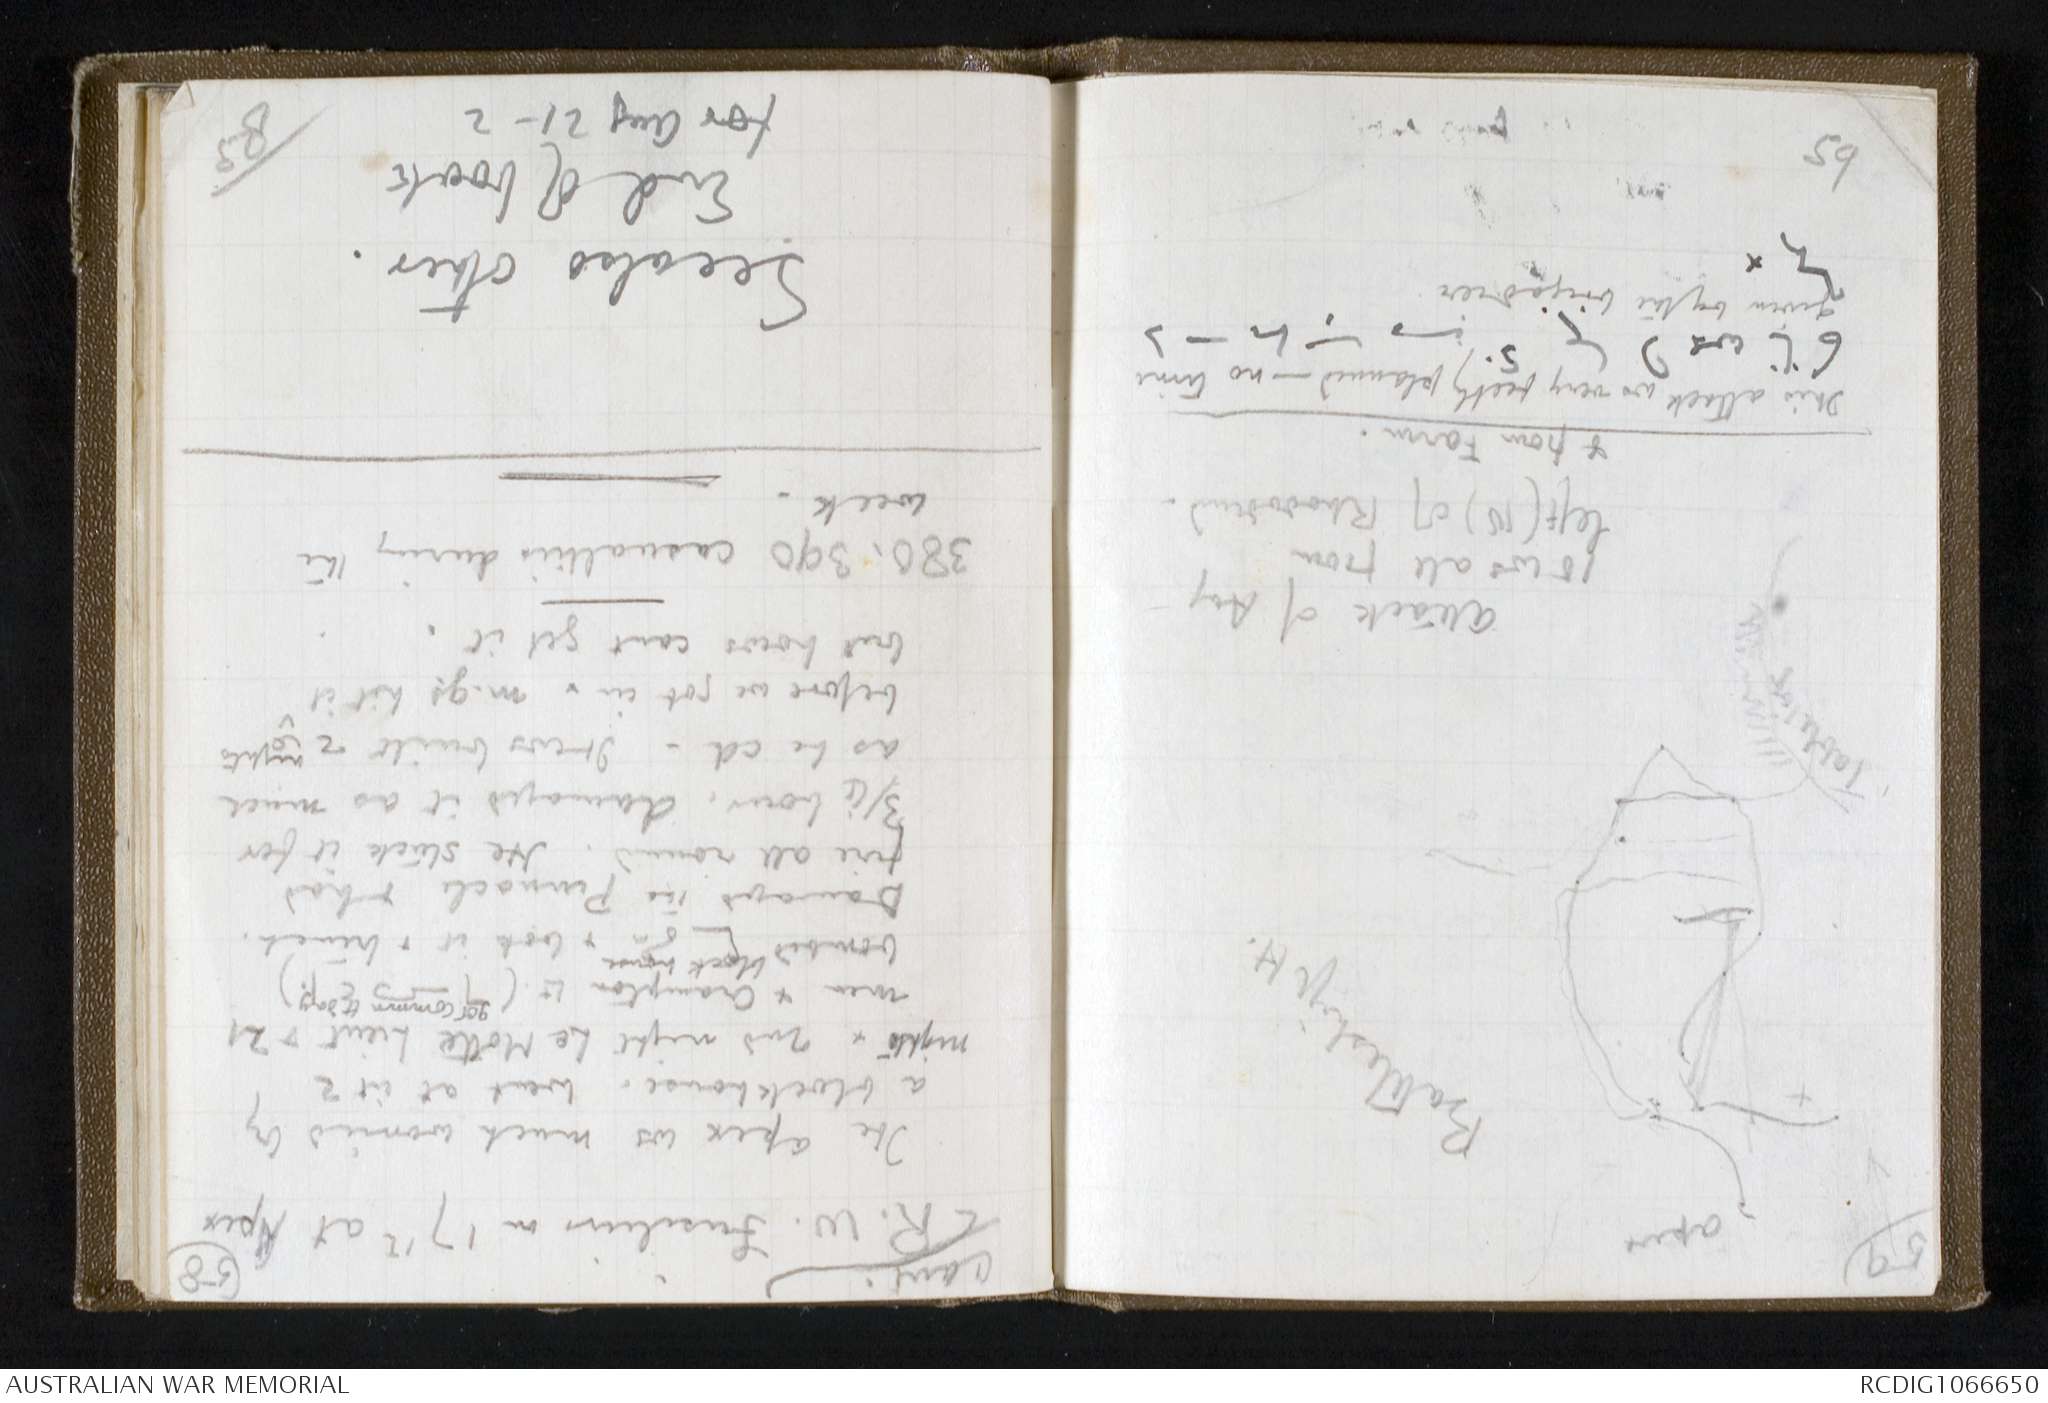 59
apex
Battleship H.
Tableland
attack of Aug
10 ws all from
left (N) of Rhododend.
& from Farm.
This attack ws very fectly planned – no time
given by the brigadier
x
65
58
Cant.
R. W. Fusiliers on 17th at Apex
The apex ws much worried by
a blockhouse. Went at it 2
nights & 2nd night Le Motte Lieut & 21
men & Crampton Lt. (
block house
bombed & took it & trench.
Damaged the Pinnacle & had
fire all round. He stuck it for
3/4 hour. damaged it as much
as he cd – It ws built 2 nights
before we got in & m.gs hit it
but hows cant get it.
380.390 casualties during the
week.
See also other
End of book
for Aug 21-2
83
AUSTRALIAN WAR MEMORIAL
RCDIG1066650